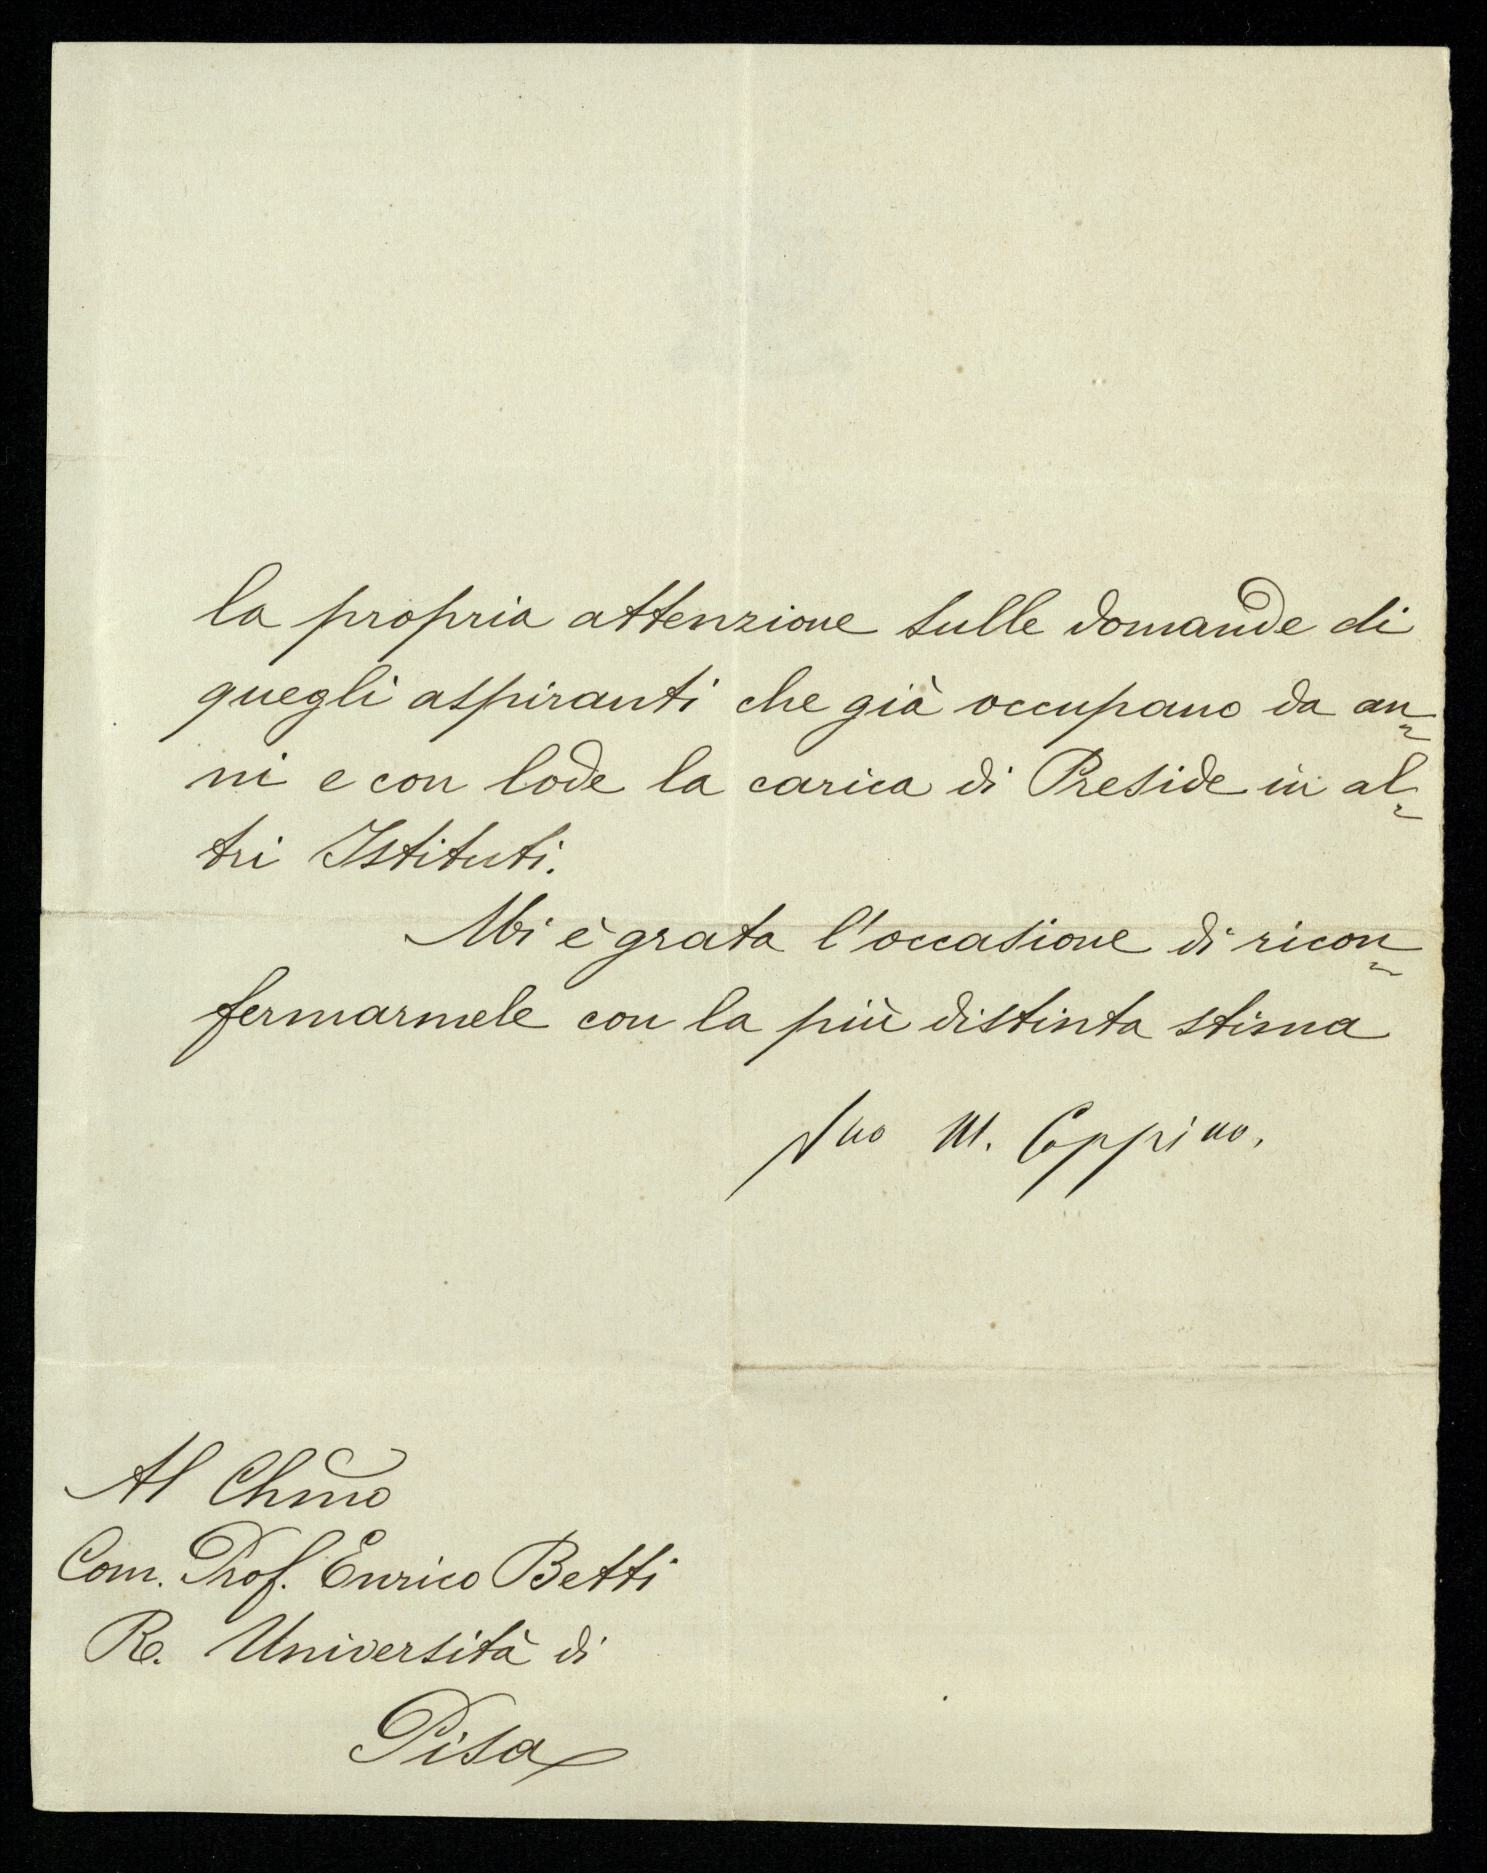 la propria attenzione sulle domande di
quegli aspiranti che già occupano da an=
ni e con lode la carica di Preside in al=
tri Istituti.
Mi è grata l'occasione di ricon=
fermarmele con la più distinta stima
Suo M. Coppino.
Al Chmo
Com. Prof. Enrico Betti
R. Università di
Pisa